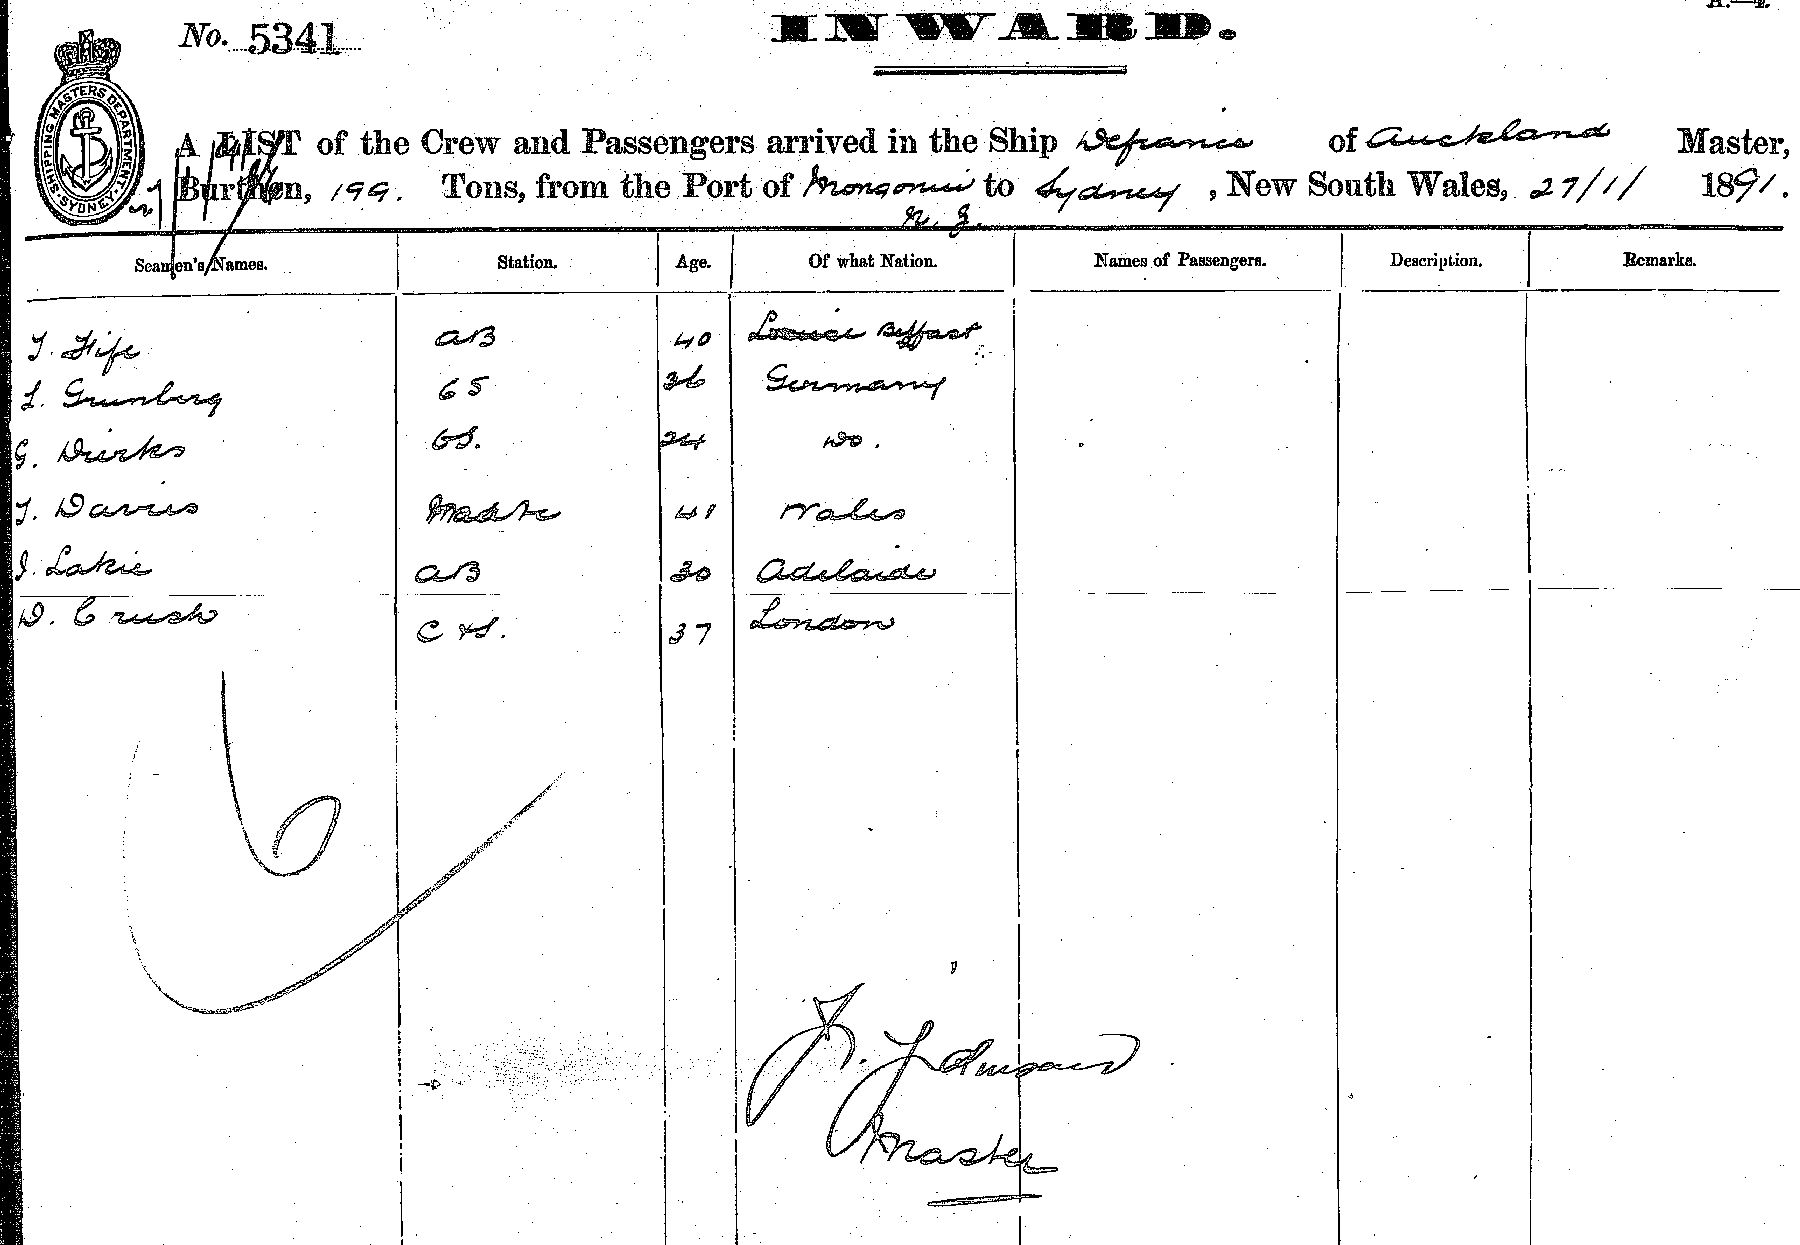 No. 5341
INWARD.
SHIPPING MASTERS DEPARTMENT SYDNEY
A LIST of the Crew and Passengers arrived in the Ship Defiance of Auckland Master,
Burthen, 199. Tons, from the Port of Mongonui to Sydney, New South Wales, 27/11/ 1891.
N. Z.
Seamen's Names. Station. Age. Of what Nation. Names of Passengers. Description. Remarks.
T. Fife AB 40 Belfast
L. Grunberg OS 36 Germany
G. Dierks OS. 24 Do.
T. Davies Mate 41 Wales
J. Lakie AB 30 Adelaide
D. Crush C & S. 37 London
6
Master